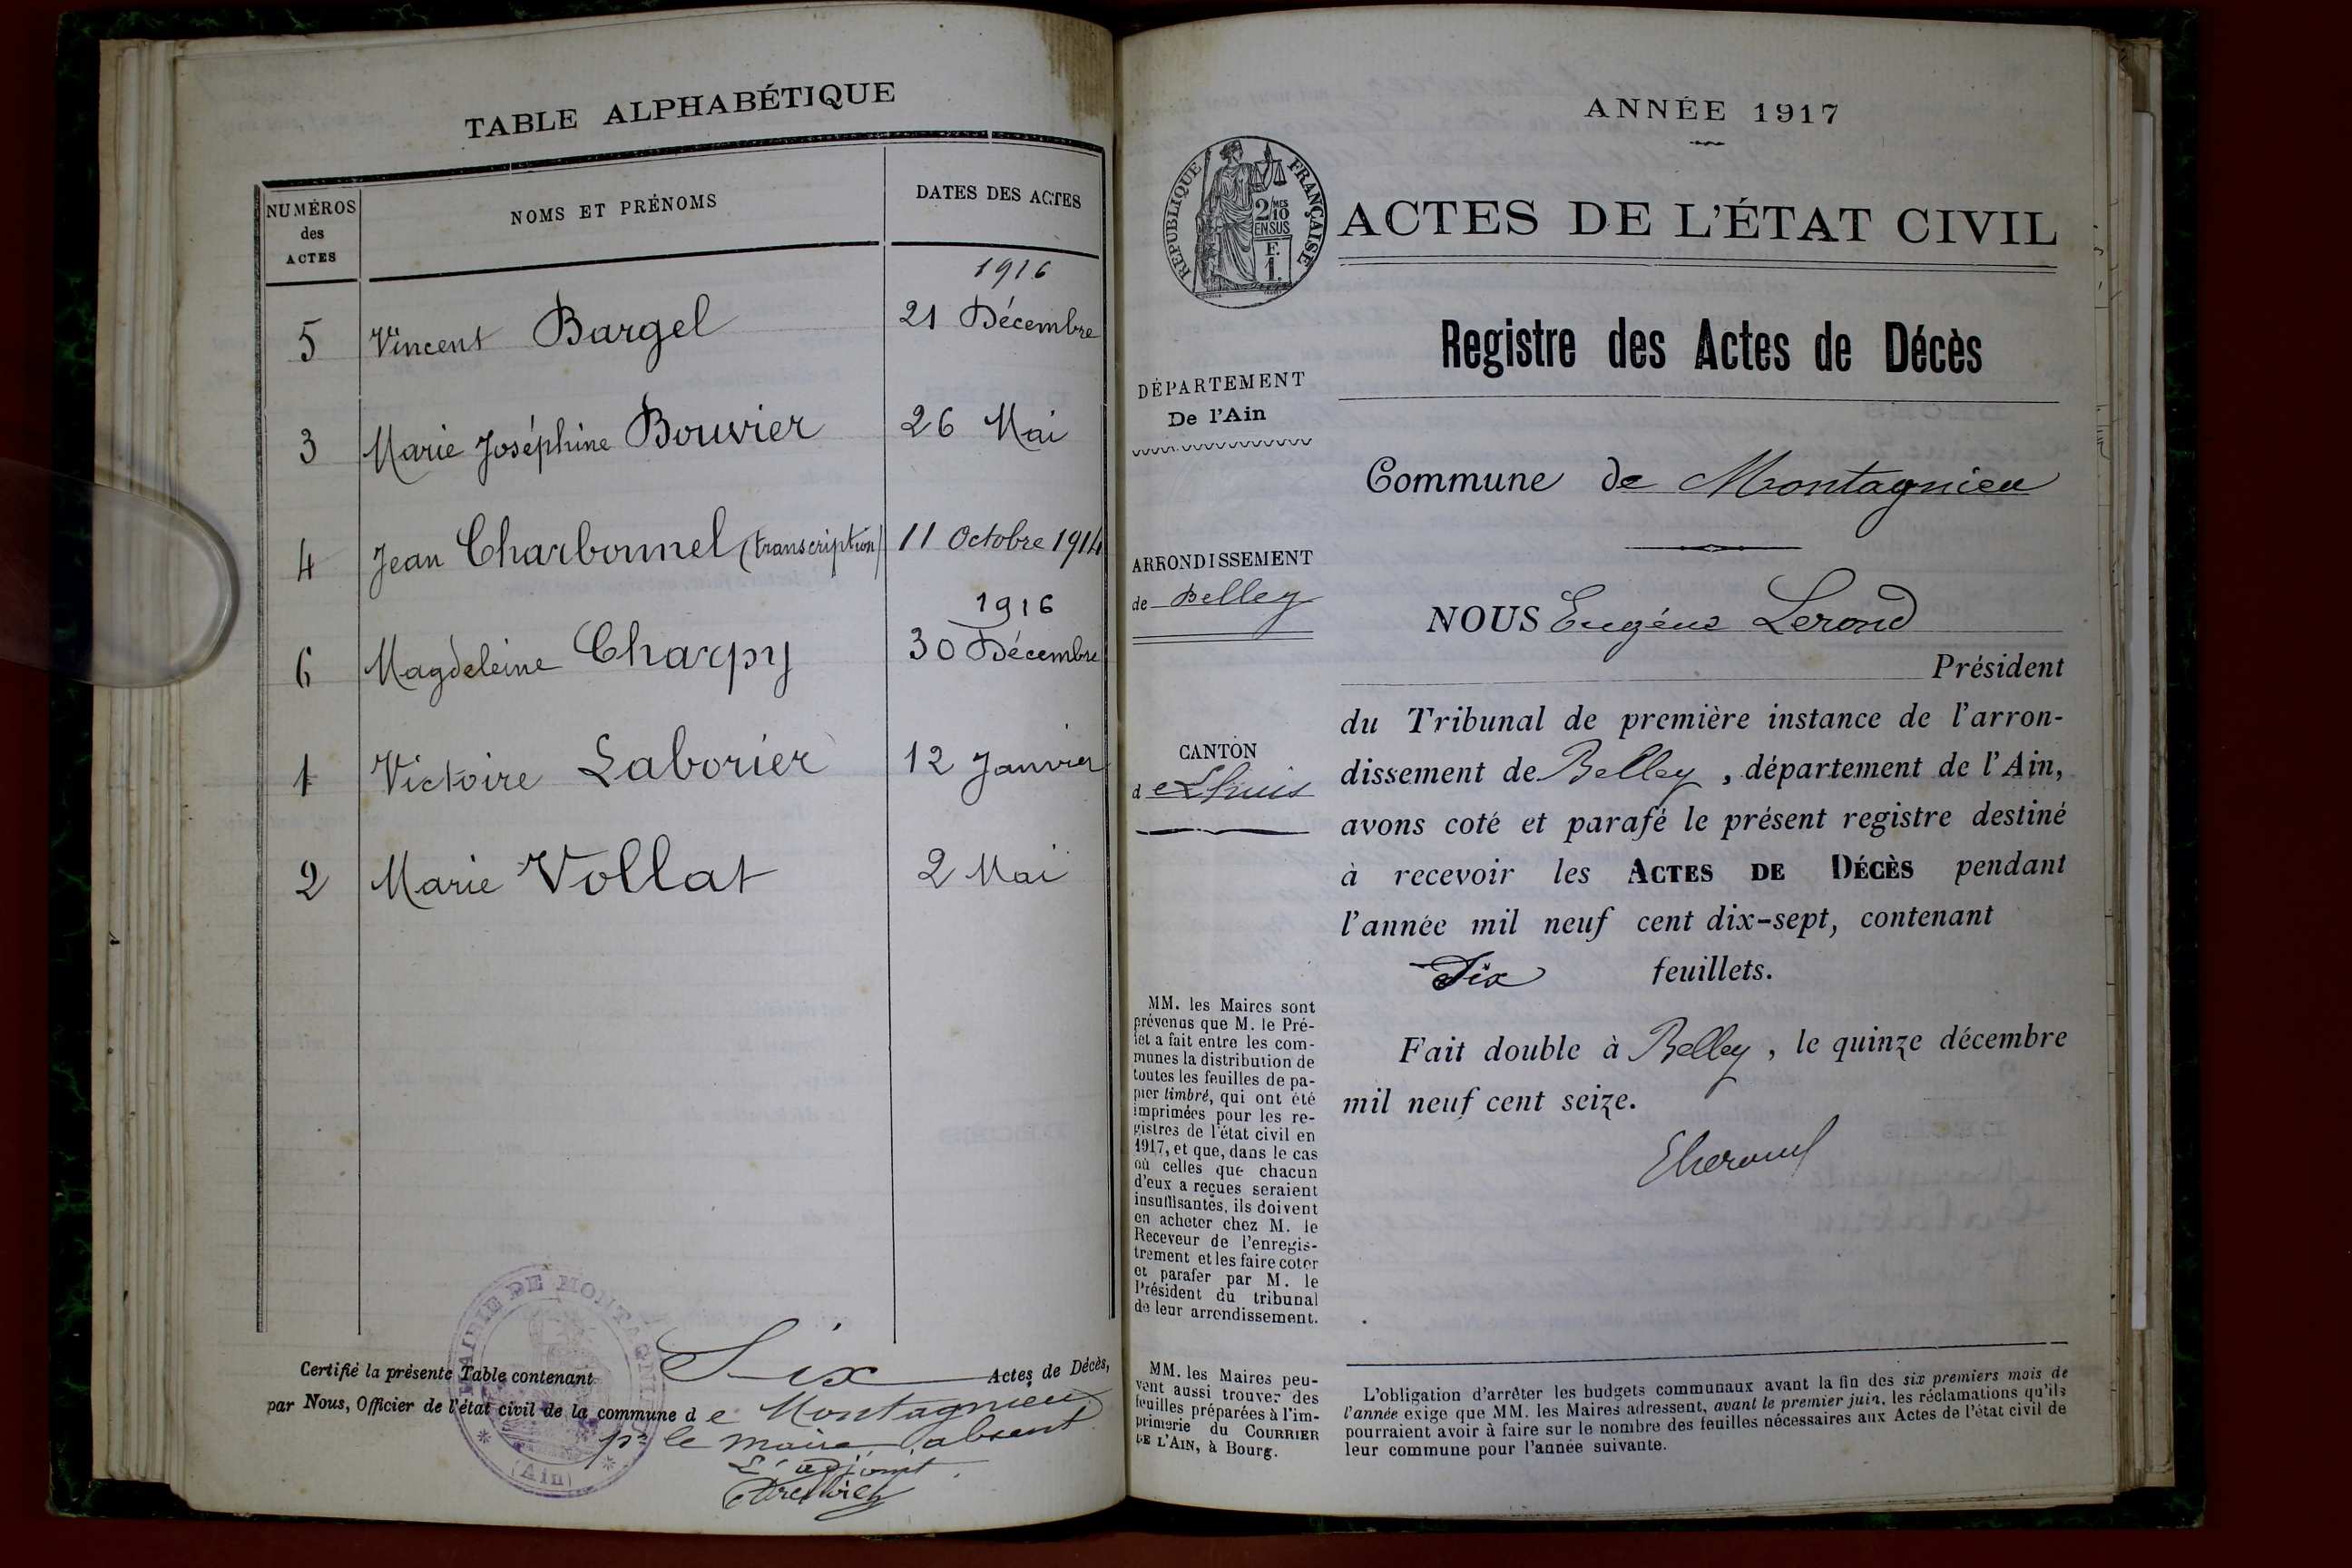 TABLE ALPHABÉTIQUE
NUMÉROS des ACTES NOMS ET PRÉNOMS DATES DES ACTES
1916
5 Vincent Bargel 21 Décembre
3 Marie Joséphine Bouvier 26 Mai
4 Jean Charbonnel (transcription) 11 Octobre 1914
1916
6 Magdeleine Charpy 30 Décembre
1 Victoire Laborier 12 Janvier
2 Marie Vollat 2 Mai
Certifié la présente Table contenant Six Actes de Décès,
par Nous, Officier de l'état civil de la commune de Montagnieu
pr le maire absent
L'adjoint
MAIRIE DE MONTAGNIEU
(Ain)
ANNÉE 1917
REPUBLIQUE FRANÇAISE
2/10 MES
EN SUS
F.
1.
ACTES DE L'ÉTAT CIVIL
Registre des Actes de Décès
DÉPARTEMENT
De l'Ain
ARRONDISSEMENT
de Belley
CANTON
de Lhuis
MM. les Maires sont
prévenus que M. le Pré-
fet a fait entre les com-
munes la distribution de
toutes les feuilles de pa-
pier timbré, qui ont été
imprimées pour les re-
gistres de l'état civil en
1917, et que, dans le cas
où celles que chacun
d'eux a reçues seraient
insuffisantes, ils doivent
en acheter chez M. le
Receveur de l'enregis-
trement et les faire coter
et parafer par M. le
Président du tribunal
de leur arrondissement.
MM. les Maires peu-
vent aussi trouver des
feuilles préparées à l'im-
primerie du COURRIER
DE L'AIN, à Bourg.
Commune de Montagnieu
NOUS Eugène Lerond
Président
du Tribunal de première instance de l'arron-
dissement de Belley, département de l'Ain,
avons coté et parafé le présent registre destiné
à recevoir les ACTES DE DÉCÈS pendant
l'année mil neuf cent dix-sept, contenant
Dix feuillets.
Fait double à Belley, le quinze décembre
mil neuf cent seize.
L'obligation d'arrêter les budgets communaux avant la fin des six premiers mois de
l'année exige que MM. les Maires adressent, avant le premier juin, les réclamations qu'ils
pourraient avoir à faire sur le nombre des feuilles nécessaires aux Actes de l'état civil de
leur commune pour l'année suivante.